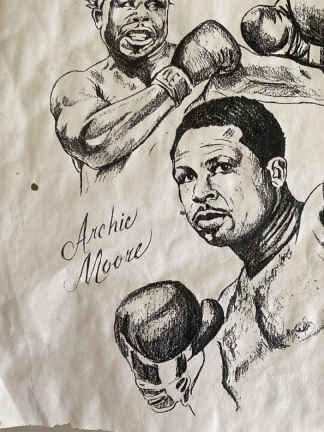 Archie
Moore